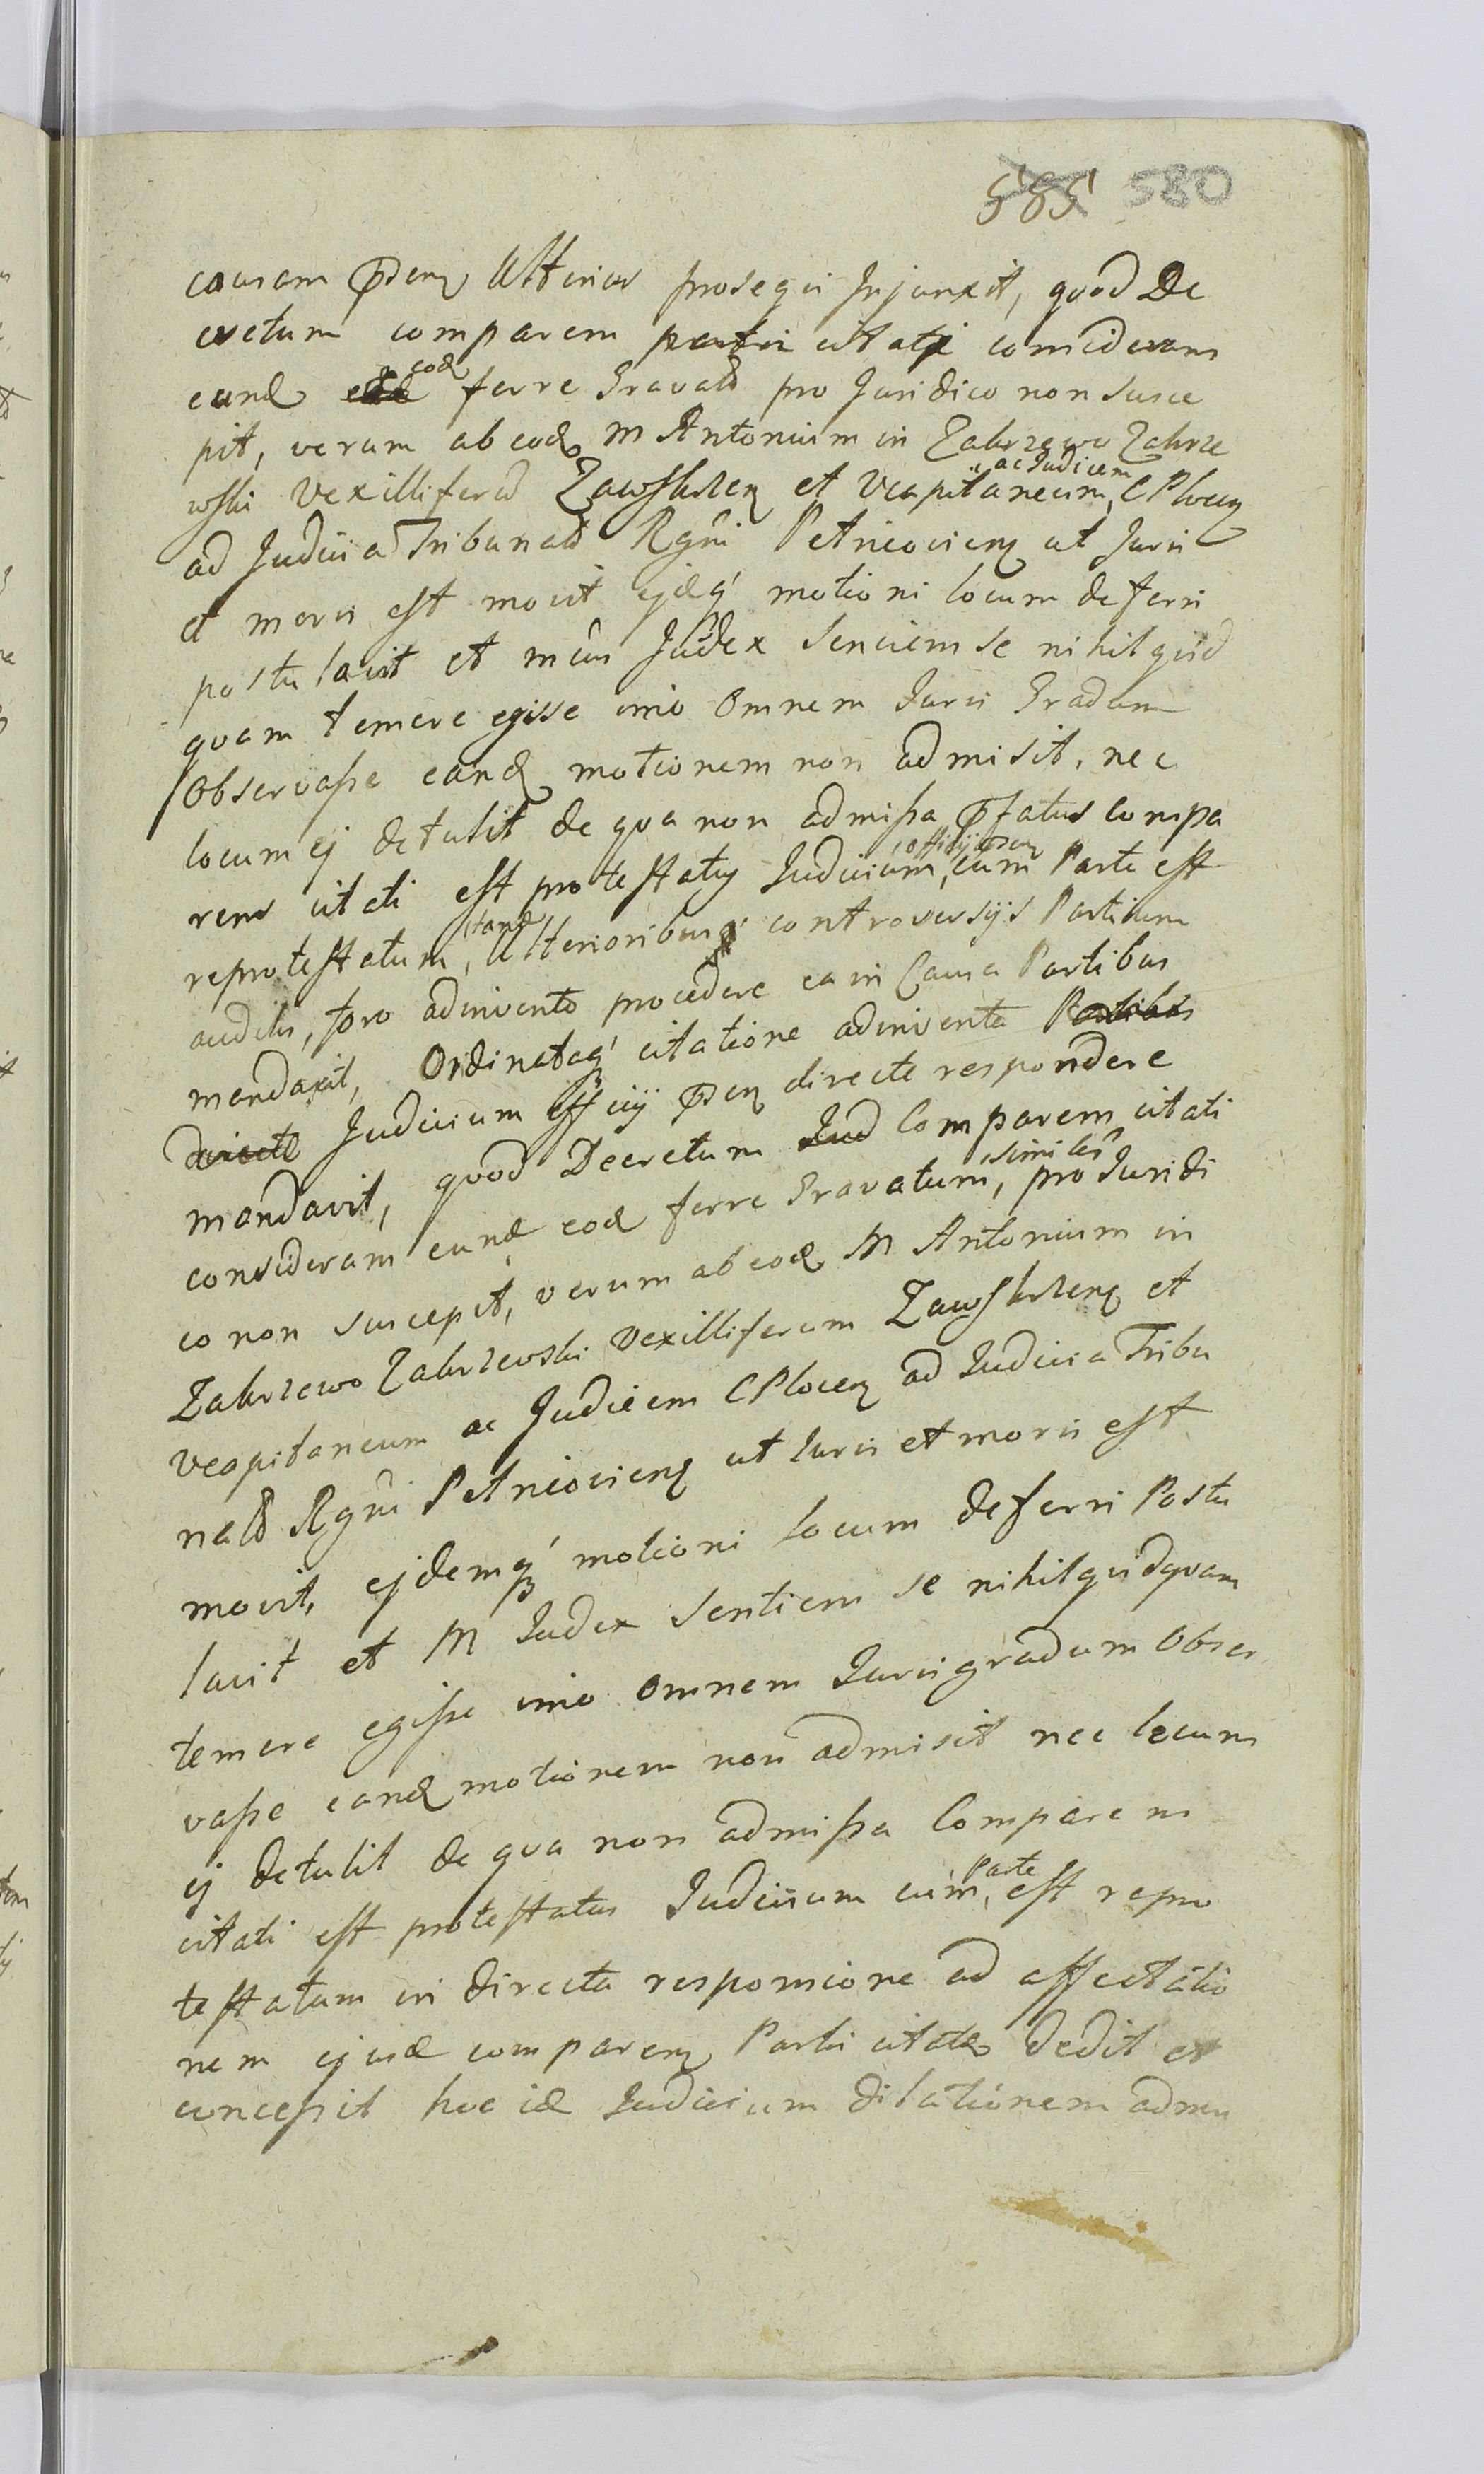 585 580
causam pñsenq Ulterius prosequi Injunxit, quod De
cretum comparens parti citati considerans
eund eod ferre Gravatū pro Juridico non susce
pit, verum ab eod M Antonium in Zakrzewo Zakrze
wski vexilliferū Zawskrzenq et Vcapitaneum, ac Judicem CPlocenq
ad Judicia Tribunalū Rgni Petricovienq ut Juris
et moris est movit ejdq́ motioni locum deferri
postulavit et mcus Judex senciens se nihil quid
quam temere egisse imo Omnem Juris Gradum
Observasse eand motionem non admisit, nec
locum ej detulit de qua non admissa pfatus compa
rens citati est protestatus Judicium, officij pñsenq cum Parte est
reprotestatum, tand Ulterioribus controversijs Partium
auditis, foro adinvento procedere ea in Causa Partibus
mandavit, Ordinataq́ citatione adinventa Partibus
directe Judicium Officij pñsenq directe respondere
mandavit, quod Decretum Jud Comparens citati
considerans eund eod ferre Gravatum, similr pro Juridi
co non suscepit, verum ab eod M Antonium in
Zakrzewo Zakrzewski Vexilliferum Zawskrzenq et
Vcapitaneum ac Judicem CPlocenq ad Judicia Tribu
nalū Rgni Petricovienq ut Juris et moris est
movit, ejdemq́ motioni locum deferri Postu
lavit et M Judex sentiens se nihil quidquam
temere egisse imo Omnem Juris gradum Obser
vasse eand motionem non admisit nec locum
ej detulit de qua non admissa Comparens
citati est protestatus Judicium cum, Parte est repro
testatum in directa responsione ad affectatio
nem ejusd comparenq Parti citatae dedit et
concessit hoc id Judicium dilationem admu